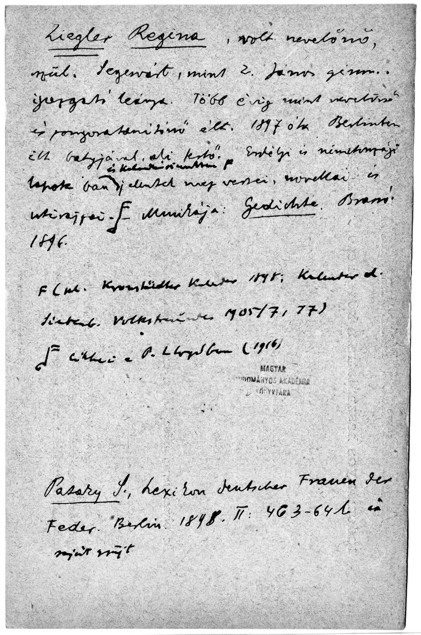 Ziegler Regina, volt nevelőnő,
szül. Segesvárt, mint Z. János gimn.
igazgató leánya. Több évig mint nevelőnő
és zongoratanítónő élt. 1897 óta Berlinben
élt bátyjával, aki festő. Erdélyi és németországi
és kalendáriumokban F
lapokban jelentek meg versei, novellái és
útirajzai. Munkája: Gedichte. Brassó
1896.
F (pl. Kronstädter Kalender 1898; Kalender d.
Siebenb. Volksfreundes 1905/7, 77)
cikkei a P. Lloydban (1916)
MAGYAR
TUDOMÁNYOS AKADÉMIA
KÖNYVTÁRA
Pataky S., Lexikon deutscher Frauen der
Feder. Berlin. 1898. II: 463-64 l. és
saját gyűjt